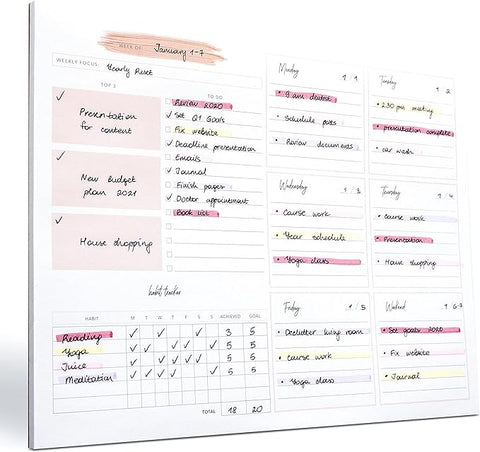 WEEK OF: January 1-7
WEEKLY FOCUS: Yearly Reset
TOP 3
Presentation
for content
New Budget
plan 2021
House shopping
TO DO
Review 2020
Set Q1 Goals
Fix website
Deadline presentation
Emails
Journal
Finish pages
Doctor appointment
Book list
Monday 1 1
9 am dentist
Schedule posts
Review documents
Tuesday 1 2
2:30 pm meeting
presentation complete
car wash
Wednesday 1 3
Course work
Year schedule
Yoga class
Thursday 1 4
Course work
Presentation
House shopping
Friday 1 5
Declutter living room
Course work
Yoga class
Weekend 1 6-7
Set goals 2020
Fix website
Journal
habit tracker
HABIT M T W T F S S ACHIEVED GOAL
Reading ✓ ✓ ✓ 3 5
Yoga ✓ ✓ ✓ ✓ ✓ 5 5
Juice ✓ ✓ ✓ ✓ ✓ 5 5
Meditation ✓ ✓ ✓ ✓ ✓ 5 5
TOTAL 18 20